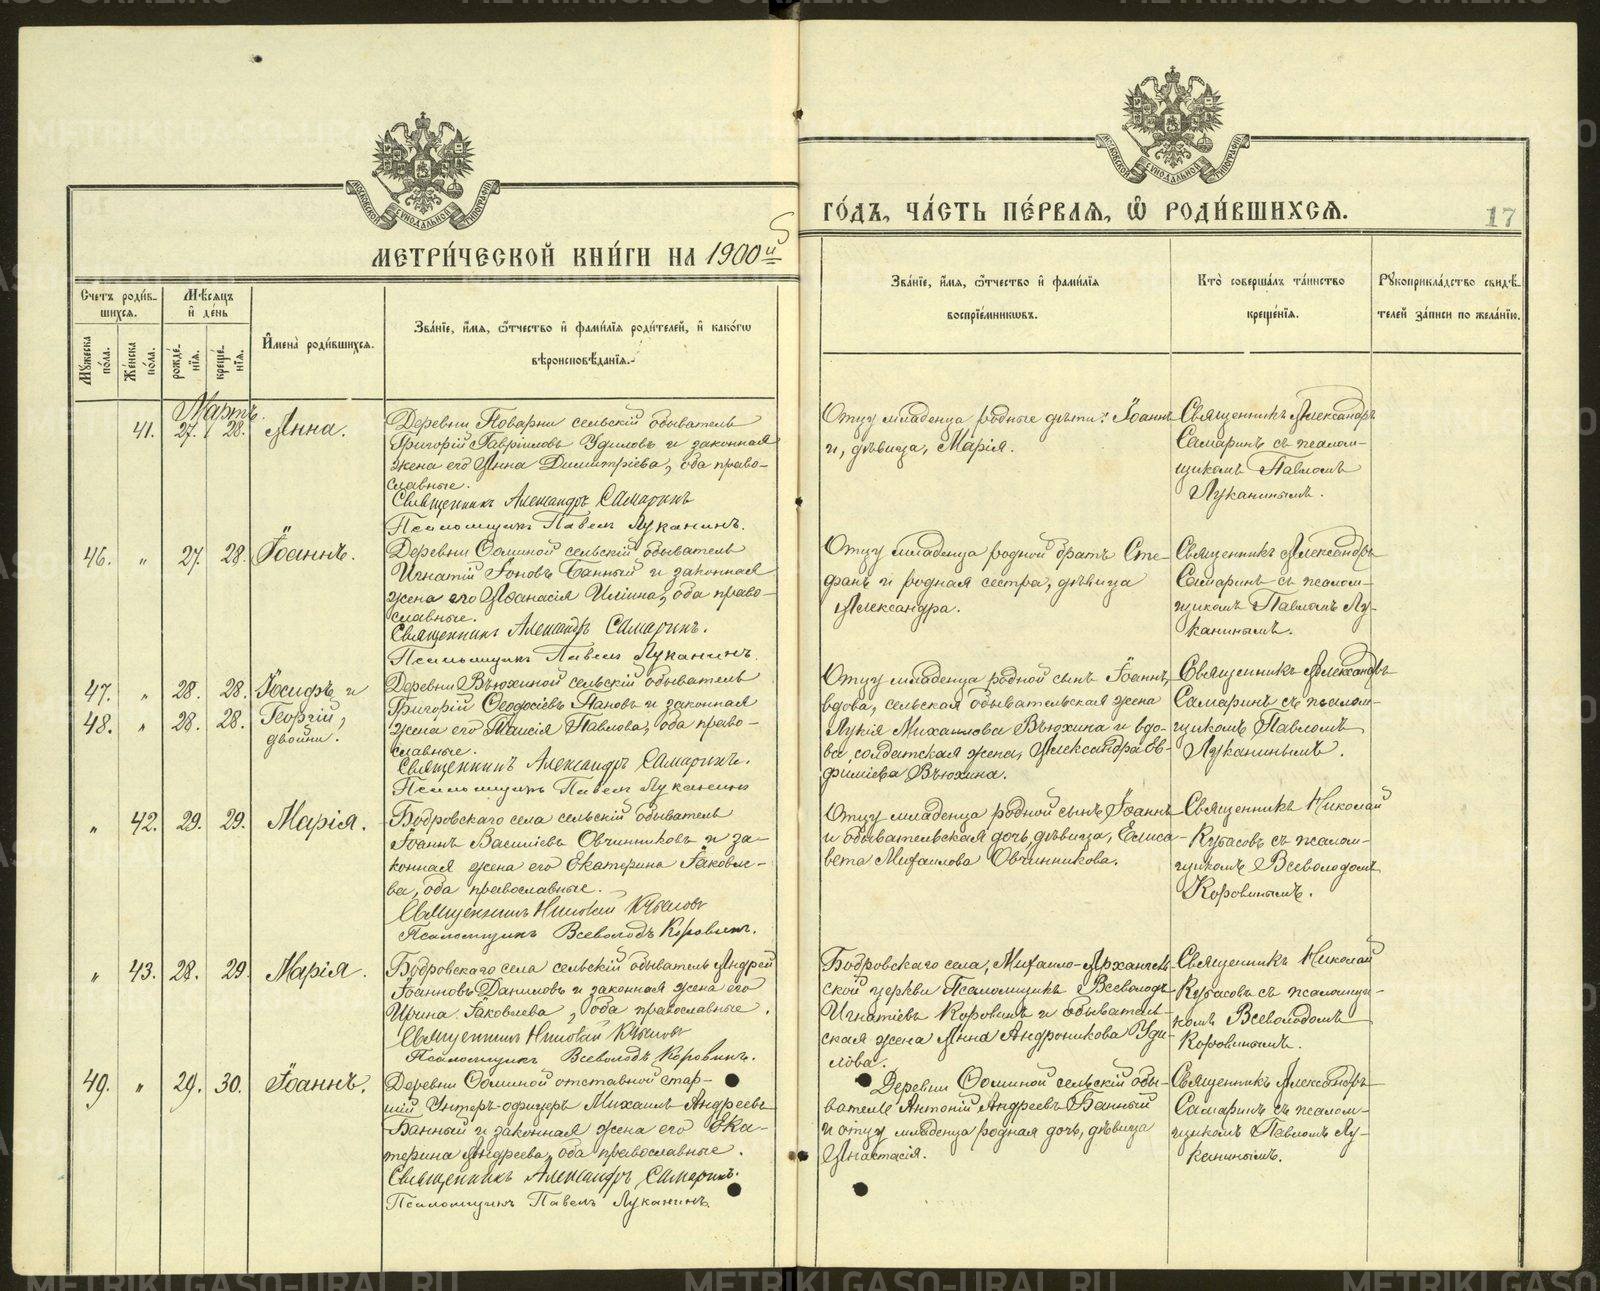 МЕТРИ́ЧЕСКОЙ КНИ́ГИ НА 1900й
ГО́ДЪ, ЧА́СТЬ ПЕ́РВАЯ, Ѽ РОДИ́ВШИХСЯ.
17
Счетъ роди́в-
шихся.
Мѣсяцъ
и҆ де́нь
И҆мена̀ роди́вшихся.
Зва́нїе, и҆́мя, ѻ҆́тчество и҆ фами́лїя роди́телей, и҆ како́гѡ
вѣроисповѣ́данїя.
Мꙋ́жеска
по́ла.
Же́нска
по́ла.
рожде́-
нїя.
креще́-
нїя.
Зва́нїе, и҆́мя, ѻ҆́тчество и҆ фами́лїя
воспрїе́мникѡвъ.
Кто̀ соверша́лъ та́инство
креще́нїя.
Рꙋкоприкла́дство свидѣ́-
телей за́писи по жела́нїю.
Мартъ.
41. 27. 28. Анна.
Деревни Поварни сельскій обыватель
Григорій Гавріиловъ Удиловъ и законная
жена его Анна Димитріева, оба право-
славные.
Священникъ Александръ Самаринъ
Псаломщикъ Павелъ Луканинъ.
Отцу младенца родные дѣти: Іоаннъ
и, дѣвица, Марія.
Священникъ Александръ
Самаринъ съ псалом-
щикомъ Павломъ
Луканинымъ.
46. " 27. 28. Іоаннъ.
Деревни Ѳоминой сельскій обыватель
Игнатій Іоновъ Банный и законная
жена его Аѳанасія Иліина, оба право-
славные.
Священникъ Александръ Самаринъ.
Псаломщикъ Павелъ Луканинъ.
Отцу младенца родной братъ Сте-
фанъ и родная сестра, дѣвица
Александра.
Священникъ Александръ
Самаринъ съ псалом-
щикомъ Павломъ Лу-
канинымъ.
47. " 28. 28. Іосифъ и
48. " 28. 28. Георгій,
двойни.
Деревни Вьюхиной сельскій обыватель
Григорій Ѳеодосіевъ Пановъ и законная
жена его Таисія Павлова, оба право-
славные.
Священникъ Александръ Самаринъ.
Псаломщикъ Павелъ Луканинъ
Отцу младенца родной сынъ Іоаннъ,
вдова, сельская обывательская жена
Лукія Михаилова Вьюхина и вдо-
ва, солдатская жена, Александра Ев-
фиміева Вьюхина.
Священникъ Александръ
Самаринъ съ псалом-
щикомъ Павломъ
Луканинымъ.
" 42. 29. 29. Марія.
Бобровскаго села сельскій обыватель
Іоаннъ Василіевъ Овчинниковъ и за-
конная жена его Екатерина Іаковле-
ва, оба православные.
Священникъ Николай Кубасовъ
Псаломщикъ Всеволодъ Коровинъ.
Отцу младенца родной сынъ Іоаннъ
и обывательская дочь, дѣвица, Елиса-
вета Михаилова Овчинникова.
Священникъ Николай
Кубасовъ съ псалом-
щикомъ Всеволодомъ
Коровинымъ.
" 43. 28. 29. Марія.
Бобровскаго села сельскій обыватель Андрей
Іоанновъ Даниловъ и законная жена его
Ирина Іаковлева, оба православные.
Священникъ Николай Кубасовъ
Псаломщикъ Всеволодъ Коровинъ.
Бобровскаго села, Михаило-Архангель-
ской церкви Псаломщикъ Всеволодъ
Игнатіевъ Коровинъ и обыватель-
ская жена Анна Андроникова Уди-
лова.
Священникъ Николай
Кубасовъ съ псаломщи-
комъ Всеволодомъ
Коровинымъ.
49. " 29. 30. Іоаннъ.
Деревни Ѳоминой отставной стар-
шій Унтеръ-офицеръ Михаилъ Андреевъ
Банный и законная жена его Ека-
терина Андреева, оба православные.
Священникъ Александръ Самаринъ.
Псаломщикъ Павелъ Луканинъ.
Деревни Ѳоминой сельскій обы-
ватель Антоній Андреевъ Банный
и отцу младенца родная дочь, дѣвица
Анастасія.
Священникъ Александръ
Самаринъ съ псалом-
щикомъ Павломъ Лу-
канинымъ.
METRIKI.GASO-URAL.RU